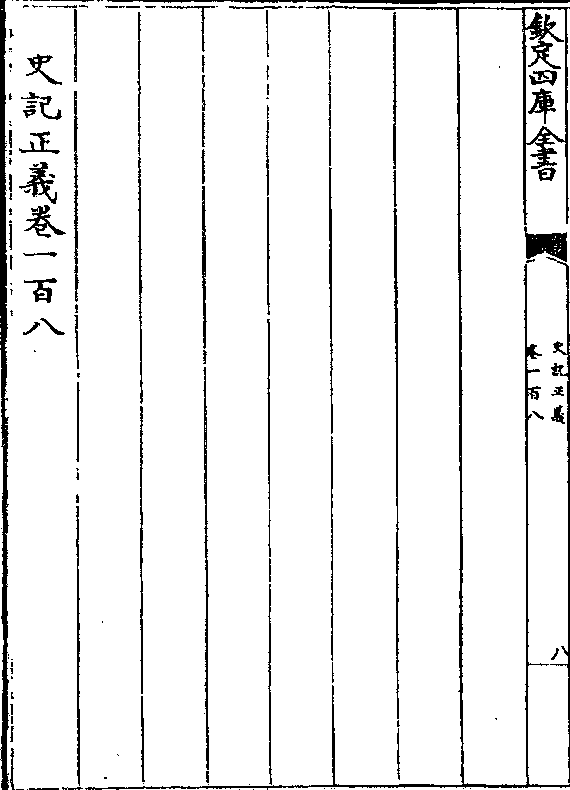 欽定四庫全書
史記正義
卷一百八
八
史記正義卷一百八